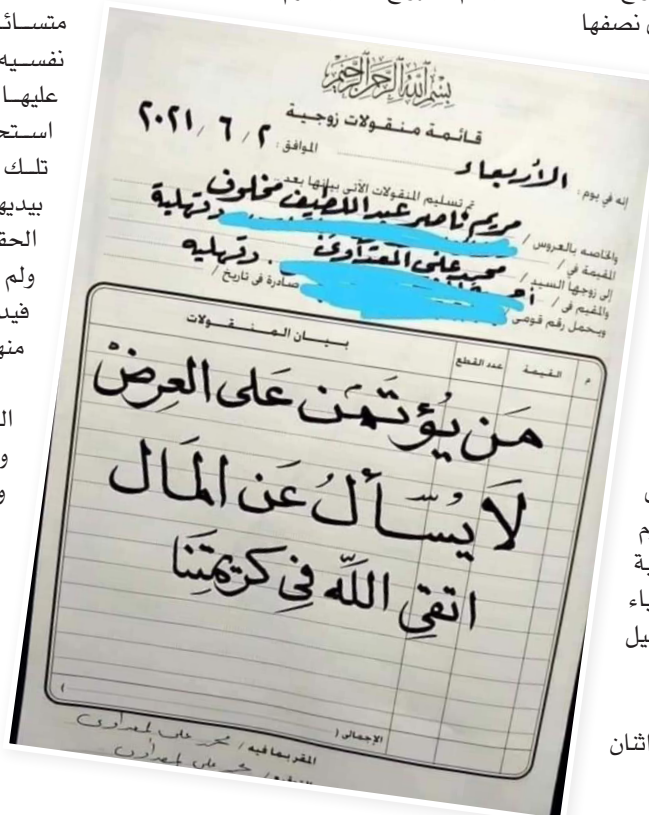 ن نصفها
متســائـ
نفســيه
عليهــا
اســتحـ
تلـك
بيديهـ
الحقـ
ولم
فيد
منهـ
بسم الله الرحمن الرحيم
قائمة منقولات زوجية
إنه في يوم : الأربعاء الموافق : ٢ / ٦ / ٢٠٢١
تم تسليم المنقولات الآتى بيانها بعد
والخاصه بالعروس / مريم ناصر عبد اللطيف مخلوف
المقيمة في / دقهلية
إلى زوجها السيد / محمد على المعداوى
والمقيم في / دقهليه
ويحمل رقم قومى صادرة فى تاريخ /
بـيـــان الـمـنـــقـــولات
م القـيـمـة عدد القطع
مَن يُؤتَمَن عَلى العِرضْ
لَا يُسَـألُ عَن المَال
اتقِي اللّه فِي كَرِيمَتِنَا
الإجمالى ( )
المقر بما فيه / محمد على المعداوى
محمد على المعداوى
ـية
ـياء
ـيل
ـاثنان